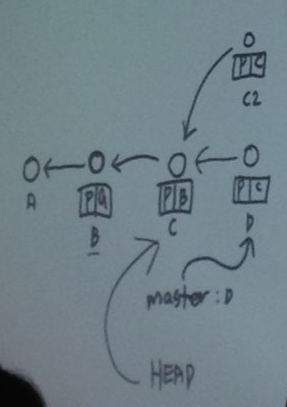 P C
C2
P A
P B
P C
A
B
C
D
master : D
HEAD